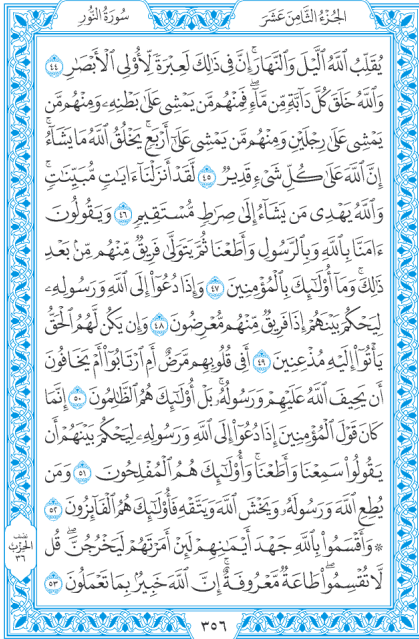 الجُزْءُ الثَّامِنَ عَشَرَ
سُورَةُ النُّورِ
يُقَلِّبُ ٱللَّهُ ٱلَّيْلَ وَٱلنَّهَارَۚ إِنَّ فِي ذَٰلِكَ لَعِبْرَةٗ لِّأُوْلِي ٱلۡأَبۡصَٰرِ ٤٤
وَٱللَّهُ خَلَقَ كُلَّ دَآبَّةٖ مِّن مَّآءٖۖ فَمِنۡهُم مَّن يَمۡشِي عَلَىٰ بَطۡنِهِۦ وَمِنۡهُم مَّن
يَمۡشِي عَلَىٰ رِجۡلَيۡنِ وَمِنۡهُم مَّن يَمۡشِي عَلَىٰٓ أَرۡبَعٖۚ يَخۡلُقُ ٱللَّهُ مَا يَشَآءُۚ
إِنَّ ٱللَّهَ عَلَىٰ كُلِّ شَيۡءٖ قَدِيرٞ ٤٥ لَّقَدۡ أَنزَلۡنَآ ءَايَٰتٖ مُّبَيِّنَٰتٖۚ
وَٱللَّهُ يَهۡدِي مَن يَشَآءُ إِلَىٰ صِرَٰطٖ مُّسۡتَقِيمٖ ٤٦ وَيَقُولُونَ
ءَامَنَّا بِٱللَّهِ وَبِٱلرَّسُولِ وَأَطَعۡنَا ثُمَّ يَتَوَلَّىٰ فَرِيقٞ مِّنۡهُم مِّنۢ بَعۡدِ
ذَٰلِكَۚ وَمَآ أُوْلَٰٓئِكَ بِٱلۡمُؤۡمِنِينَ ٤٧ وَإِذَا دُعُوٓاْ إِلَى ٱللَّهِ وَرَسُولِهِۦ
لِيَحۡكُمَ بَيۡنَهُمۡ إِذَا فَرِيقٞ مِّنۡهُم مُّعۡرِضُونَ ٤٨ وَإِن يَكُن لَّهُمُ ٱلۡحَقُّ
يَأۡتُوٓاْ إِلَيۡهِ مُذۡعِنِينَ ٤٩ أَفِي قُلُوبِهِم مَّرَضٌ أَمِ ٱرۡتَابُوٓاْ أَمۡ يَخَافُونَ
أَن يَحِيفَ ٱللَّهُ عَلَيۡهِمۡ وَرَسُولُهُۥۚ بَلۡ أُوْلَٰٓئِكَ هُمُ ٱلظَّٰلِمُونَ ٥٠ إِنَّمَا
كَانَ قَوۡلَ ٱلۡمُؤۡمِنِينَ إِذَا دُعُوٓاْ إِلَى ٱللَّهِ وَرَسُولِهِۦ لِيَحۡكُمَ بَيۡنَهُمۡ أَن
يَقُولُواْ سَمِعۡنَا وَأَطَعۡنَاۚ وَأُوْلَٰٓئِكَ هُمُ ٱلۡمُفۡلِحُونَ ٥١ وَمَن
يُطِعِ ٱللَّهَ وَرَسُولَهُۥ وَيَخۡشَ ٱللَّهَ وَيَتَّقۡهِ فَأُوْلَٰٓئِكَ هُمُ ٱلۡفَآئِزُونَ ٥٢
۞ وَأَقۡسَمُواْ بِٱللَّهِ جَهۡدَ أَيۡمَٰنِهِمۡ لَئِنۡ أَمَرۡتَهُمۡ لَيَخۡرُجُنَّۖ قُل
لَّا تُقۡسِمُواْۖ طَاعَةٞ مَّعۡرُوفَةٌۚ إِنَّ ٱللَّهَ خَبِيرُۢ بِمَا تَعۡمَلُونَ ٥٣
الحِزْب
٣٦
٣٥٦